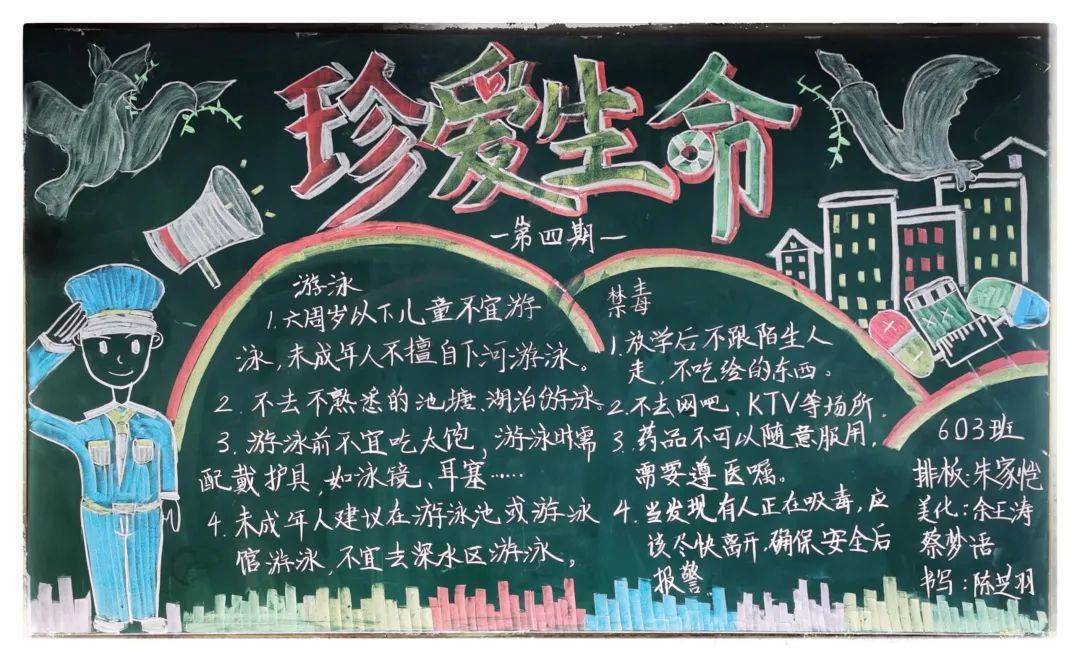 珍爱生命
—第四期—
游泳
1.六周岁以下儿童不宜游
泳,未成年人不擅自下河游泳。
2.不去不熟悉的池塘、湖泊游泳。
3.游泳前不宜吃太饱,游泳时需
配戴护具,如泳镜、耳塞……
4.未成年人建议在游泳池或游泳
馆游泳,不宜去深水区游泳。
禁毒
1.放学后不跟陌生人
走,不吃给的东西。
2.不去网吧、KTV等场所.
3.药品不可以随意服用,
需要遵医嘱。
4.当发现有人正在吸毒,应
该尽快离开,确保安全后
报警
603班
排板:朱家恺
美化:余正涛
蔡梦语
书写:陈芝羽